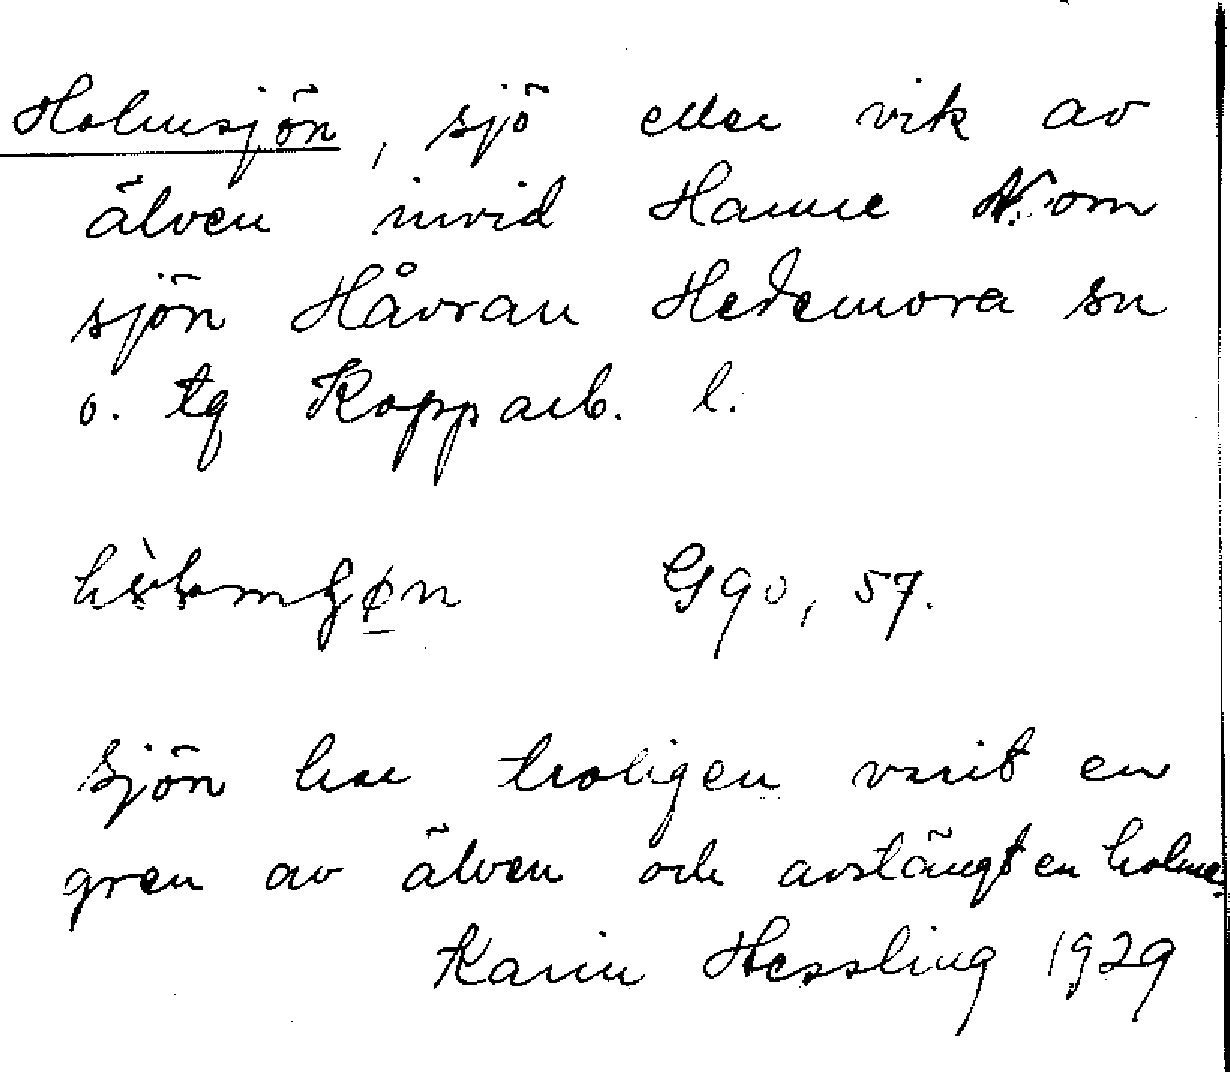 Holmsjön, sjö eller vik av
älven invid Hamre N. om
sjön Håvran Hedemora sn
o. tg Kopparb. l.
G 90, 57.
Sjön har troligen varit en
gren av älven och avstängt en holme.
Karin Hessling 1929